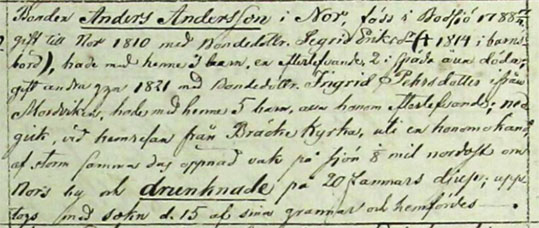 Bonden Anders Andersson i Nor, föds i Bodsjö 1788
gift till Nor 1810 med Bondedottr. Segrid Eriksd. († 1814 i barns-
börd), hade med henne 3 barn, en efterlefvande, 2 i späda åren döda,
gift andra gng 1821 med Bondedottr. Ingrid Pehrsdotter ifrån
Mordviken, hade med henne 5 barn, hanom efterlefvande; ne
gick, vid hemresan från Bräcke Kyrka, uti en hanom
af storm samma dag öppnad vak på sjön ⅛ mil nordost om
Nors by och drunknade på 20 famnars djup; upp
togs med sökn d. 15 af sina grannar och hemfördes.